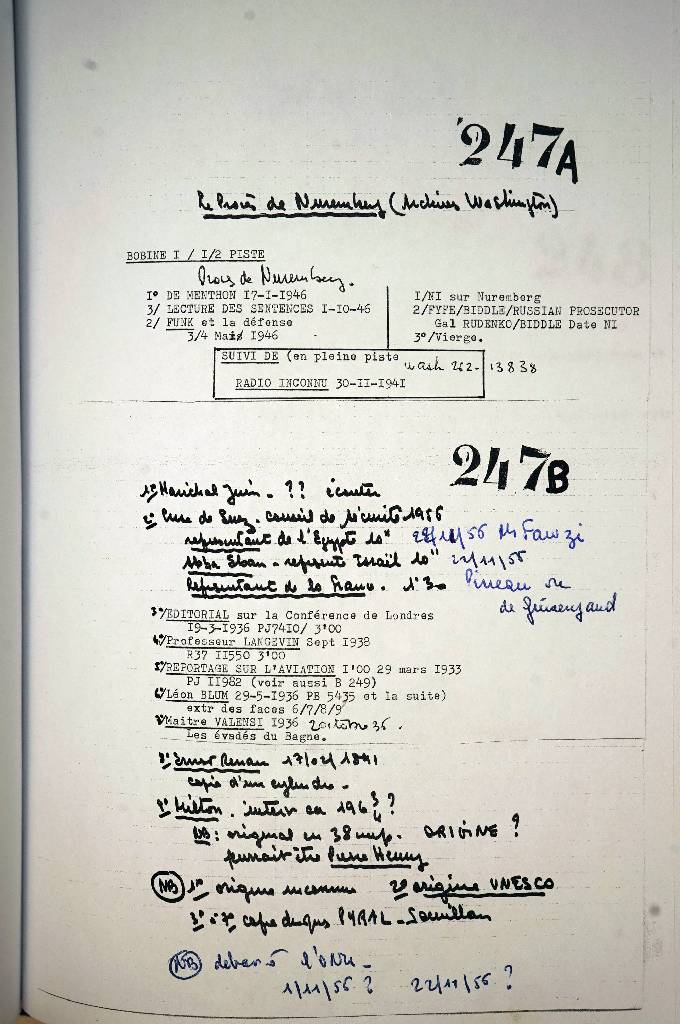 247A
Le Procès de Nuremberg (Archives Washington)
BOBINE I / I/2 PISTE
Procès de Nuremberg.
I° DE MENTHON I7-I-I946
3/ LECTURE DES SENTENCES I-I0-46
2/ FUNK et la défense
3/4 Mai I946
I/NI sur Nuremberg
2/FYFE/BIDDLE/RUSSIAN PROSECUTOR
Gal RUDENKO/BIDDLE Date NI
3°/Vierge.
SUIVI DE (en pleine piste wash 262- 13838
RADIO INCONNU 30-II-I94I
247B
1° Maréchal Juin - ?? écouter
2° Crise de Suez. conseil de sécurité 1956
représentant de l'Egypte 10" 22/11/56 Mr Fawzi
Abba Eban - représent Israël 10" 22/11/56
Représentant de la France. 1'30 Pineau ou
de Guiringaud
3°/EDITORIAL sur la Conférence de Londres
I9-3-I936 PJ74I0/ 3'00
4°/Professeur LANGEVIN Sept I938
R37 II550 3'00
5°/REPORTAGE SUR L'AVIATION I'00 29 mars I933
PJ II982 (voir aussi B 249)
6°/Léon BLUM 29-5-I936 PB 5435 et la suite)
extr des faces 6/7/8/9
7°/Maitre VALENSI I936 octobre 36.
Les évadés du Bagne.
8° Ernest Renan 1891
copie d'un cylindre -
9° Milton. interv en 196 ?
NB : original en 38 ORIGINE ?
pourrait être Pierre Henry
NB 1° origine inconnue 2° origine UNESCO
3° à 7° copie disques PYRAL -
NB débat à l'ONU -
1/11/56 ? 22/11/56 ?